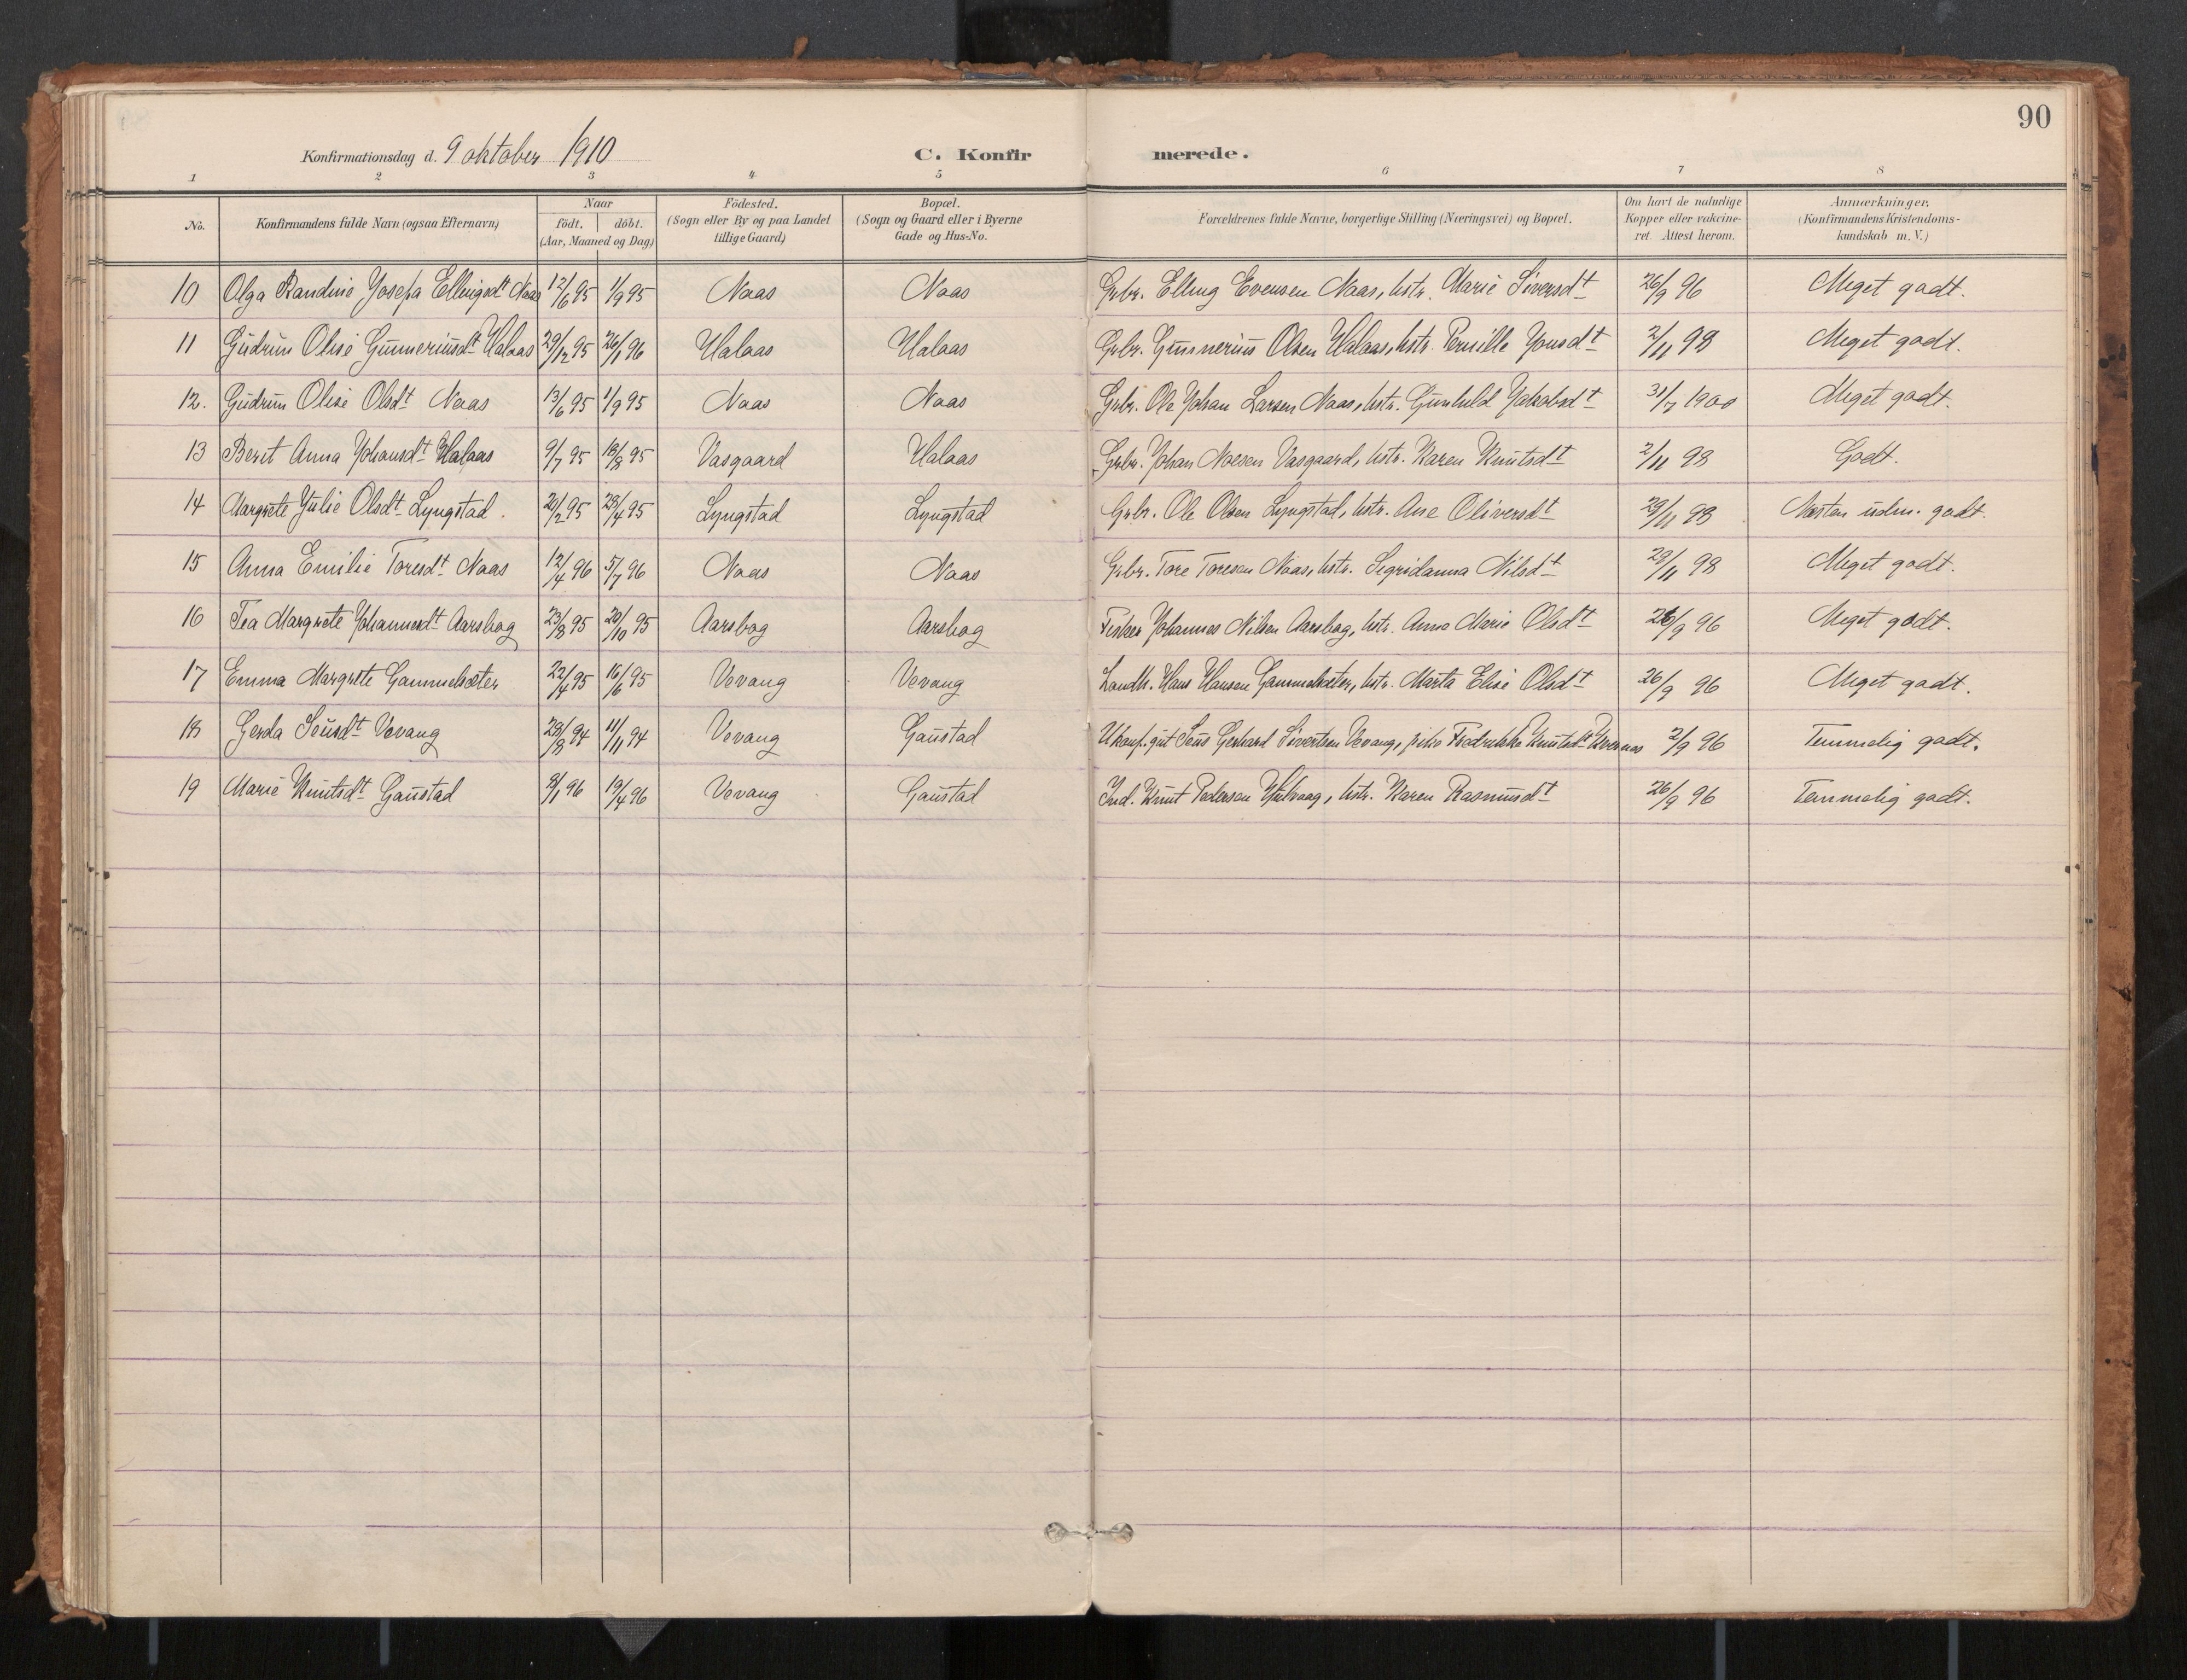 90
Konfirmationsdag d. 9 oktober 1910 C. Konfirmerede.
1 2 3 4 5 6 7 8
No. Konfirmandens fulde Navn (ogsaa Efternavn) Naar födt. döbt. (Aar, Maaned og Dag) Födested. (Sogn eller By og paa Landet tillige Gaard) Bopæl. (Sogn og Gaard eller i Byerne Gade og Hus-No. Forældrenes fulde Navne, borgerlige Stilling (Næringsvei) og Bopæl. Om havt de naturlige Kopper eller vakcineret. Attest herom. Anmærkninger. (Konfirmandens Kristendomskundskab m. V.)
10 Olga Randine Josefa Ellingsdt Naas 12/6 95 1/9 95 Naas Naas Grbr. Elling Evensen Naas, hstr. Marie Siversdt 26/9 96 Meget godt.
11 Gudrun Olise Gunneriusdt Halaas 29/12 95 26/1 96 Halaas Halaas Grbr. Gunnerius Olsen Halaas, hstr. Pernille Jonsdt 2/11 98 Meget godt.
12. Gudrun Olise Olsdt Naas 13/6 95 1/9 95 Naas Naas Grbr. Ole Johan Larsen Naas, hstr. Gunhild Jakobsdt 31/7 1900 Meget godt.
13 Beret Anna Johansdt Halaas 9/7 95 18/8 95 Vasgaard Halaas Grbr. Johan Vasgaard, hstr. Karen Knutsdt 2/11 98 Godt.
14 Margrete Julie Olsdt Lyngstad. 20/2 95 28/4 95 Lyngstad Lyngstad Grbr. Ole Olsen Lyngstad, hstr. Ane Oliversdt 29/11 98 Næsten udm. godt.
15 Anna Emilie Toresdt Naas 12/4 96 5/7 96 Naas Naas Grbr. Tore Toresen Naas, hstr. Sigridanna Nilsdt 29/11 98 Meget godt.
16 Tea Margrete Johannesdt Aarsbog 23/8 95 20/10 95 Aarsbog Aarsbog Fisker Johannes Nilsen Aarsbog, hstr. Anne Marie Olsdt 26/9 96 Meget godt.
17 Emma Margrete Gammelsæter 22/4 95 16/6 95 Vevang Vevang Landh. Hans Hansen Gammelsæter, hstr. Marta Elise Olsdt 26/9 96 Meget godt.
18 Gerda Jensdt Vevang 28/8 94 11/11 94 Vevang Gaustad Ukonf. gut Jens Gerhard Sivertsen Vevang, pike Fredrikke Knutsdt 2/9 96 Temmelig godt.
19 Marie Knutsdt Gaustad 9/1 96 19/4 96 Vevang Gaustad Ind. Knut Pedersen hstr. Karen Rasmusdt 26/9 96 Temmelig godt.